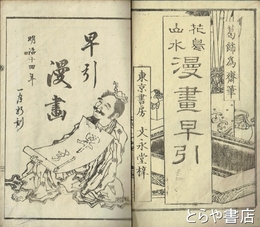 葛飾為斎筆
花鳥
山水
漫畫早引
東京書房 大永堂梓
早引
漫畫
明治十四年
一月新刻
とらや書店